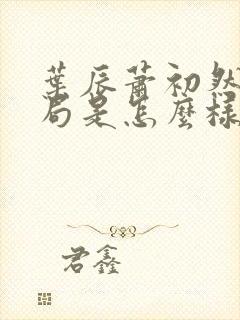 葉辰蕭初然
局是怎麼樣
君鑫